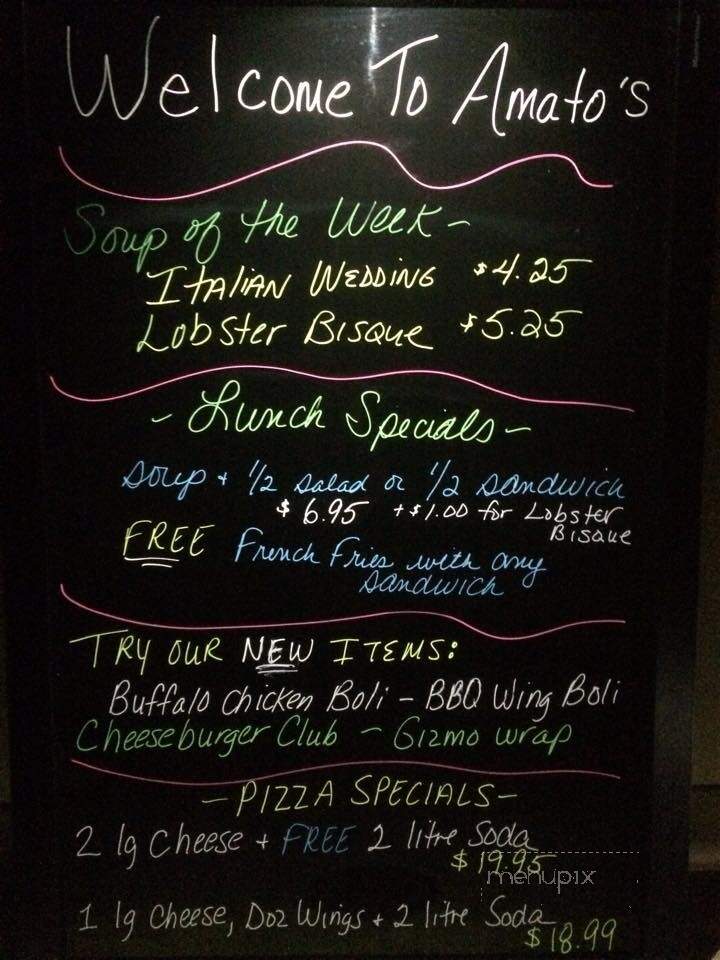 Welcome To Amato's
Soup of the Week -
Italian Wedding $4.25
Lobster Bisque $5.25
- Lunch Specials -
soup + 1/2 salad or 1/2 sandwich
$6.95 + $1.00 for Lobster
Bisque
FREE French Fries with any
sandwich
TRY OUR NEW ITEMS:
Buffalo Chicken Boli - BBQ Wing Boli
Cheeseburger Club - Gizmo wrap
- PIZZA SPECIALS -
2 lg Cheese + FREE 2 litre Soda
$19.95
menupix
1 lg Cheese, Doz Wings + 2 litre Soda
$18.99